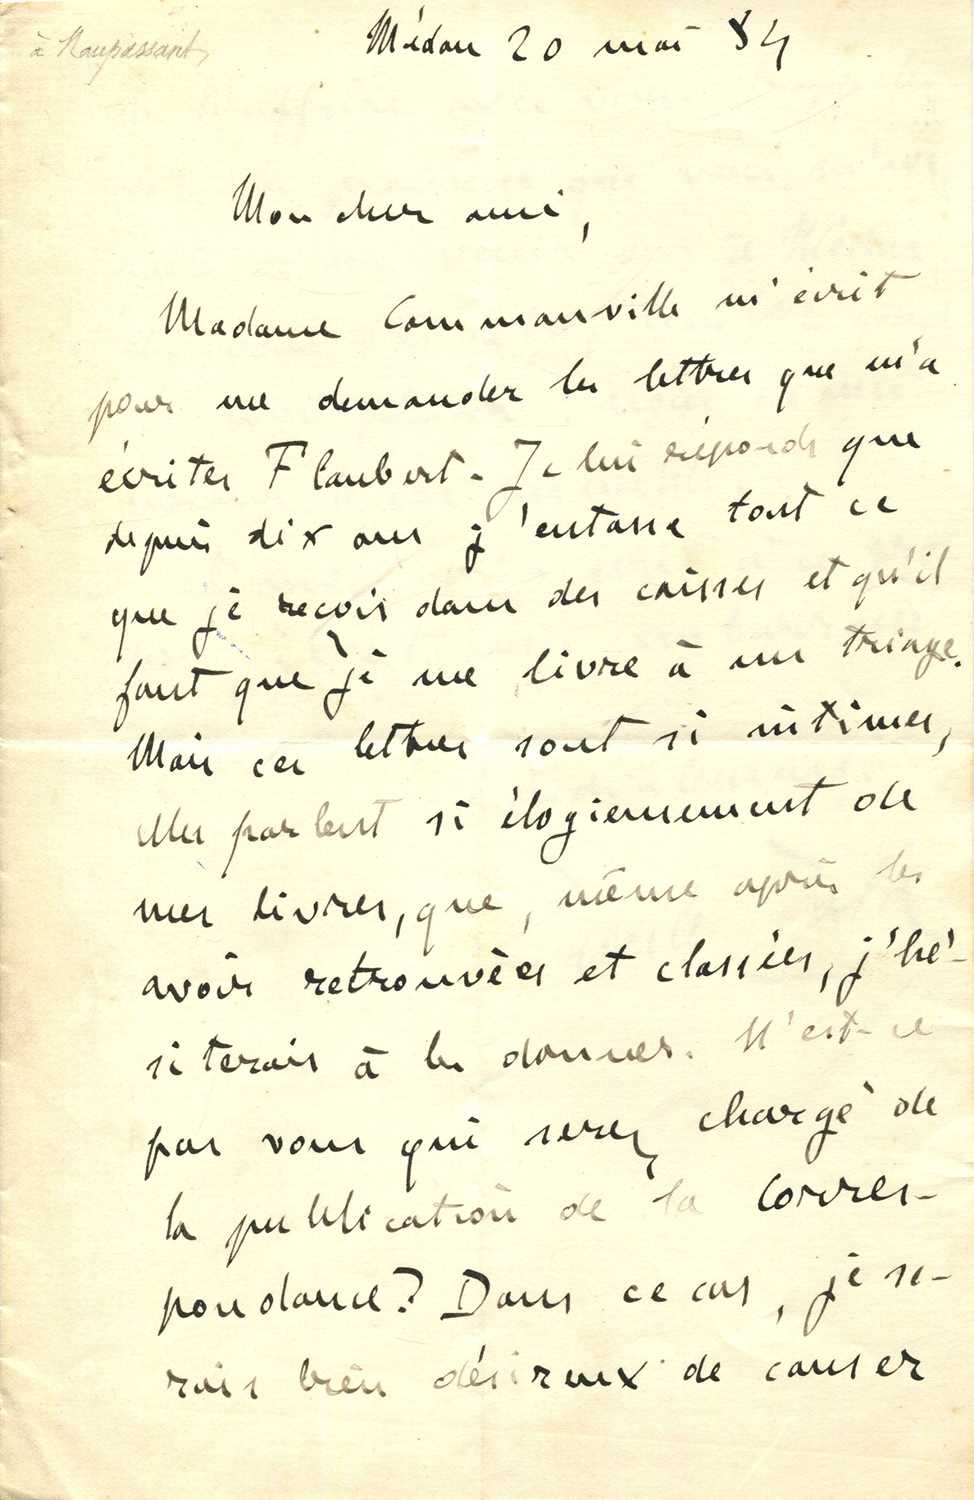 à Maupassant
Médan 20 mai 84
Mon cher ami,
Madame Commanville m'écrit
pour me demander les lettres que m'a
écrites Flaubert. Je lui réponds que
depuis dix ans j'entasse tout ce
que je reçois dans des caisses et qu'il
faut que je me livre à un triage.
Mais ces lettres sont si intimes,
elles parlent si élogieusement de
mes livres, que, même après les
avoir retrouvées et classées, j'hé-
siterais à les donner. N'est-ce
pas vous qui serez chargé de
la publication de la Corres-
pondance? Dans ce cas, je se-
rais bien désireux de causer